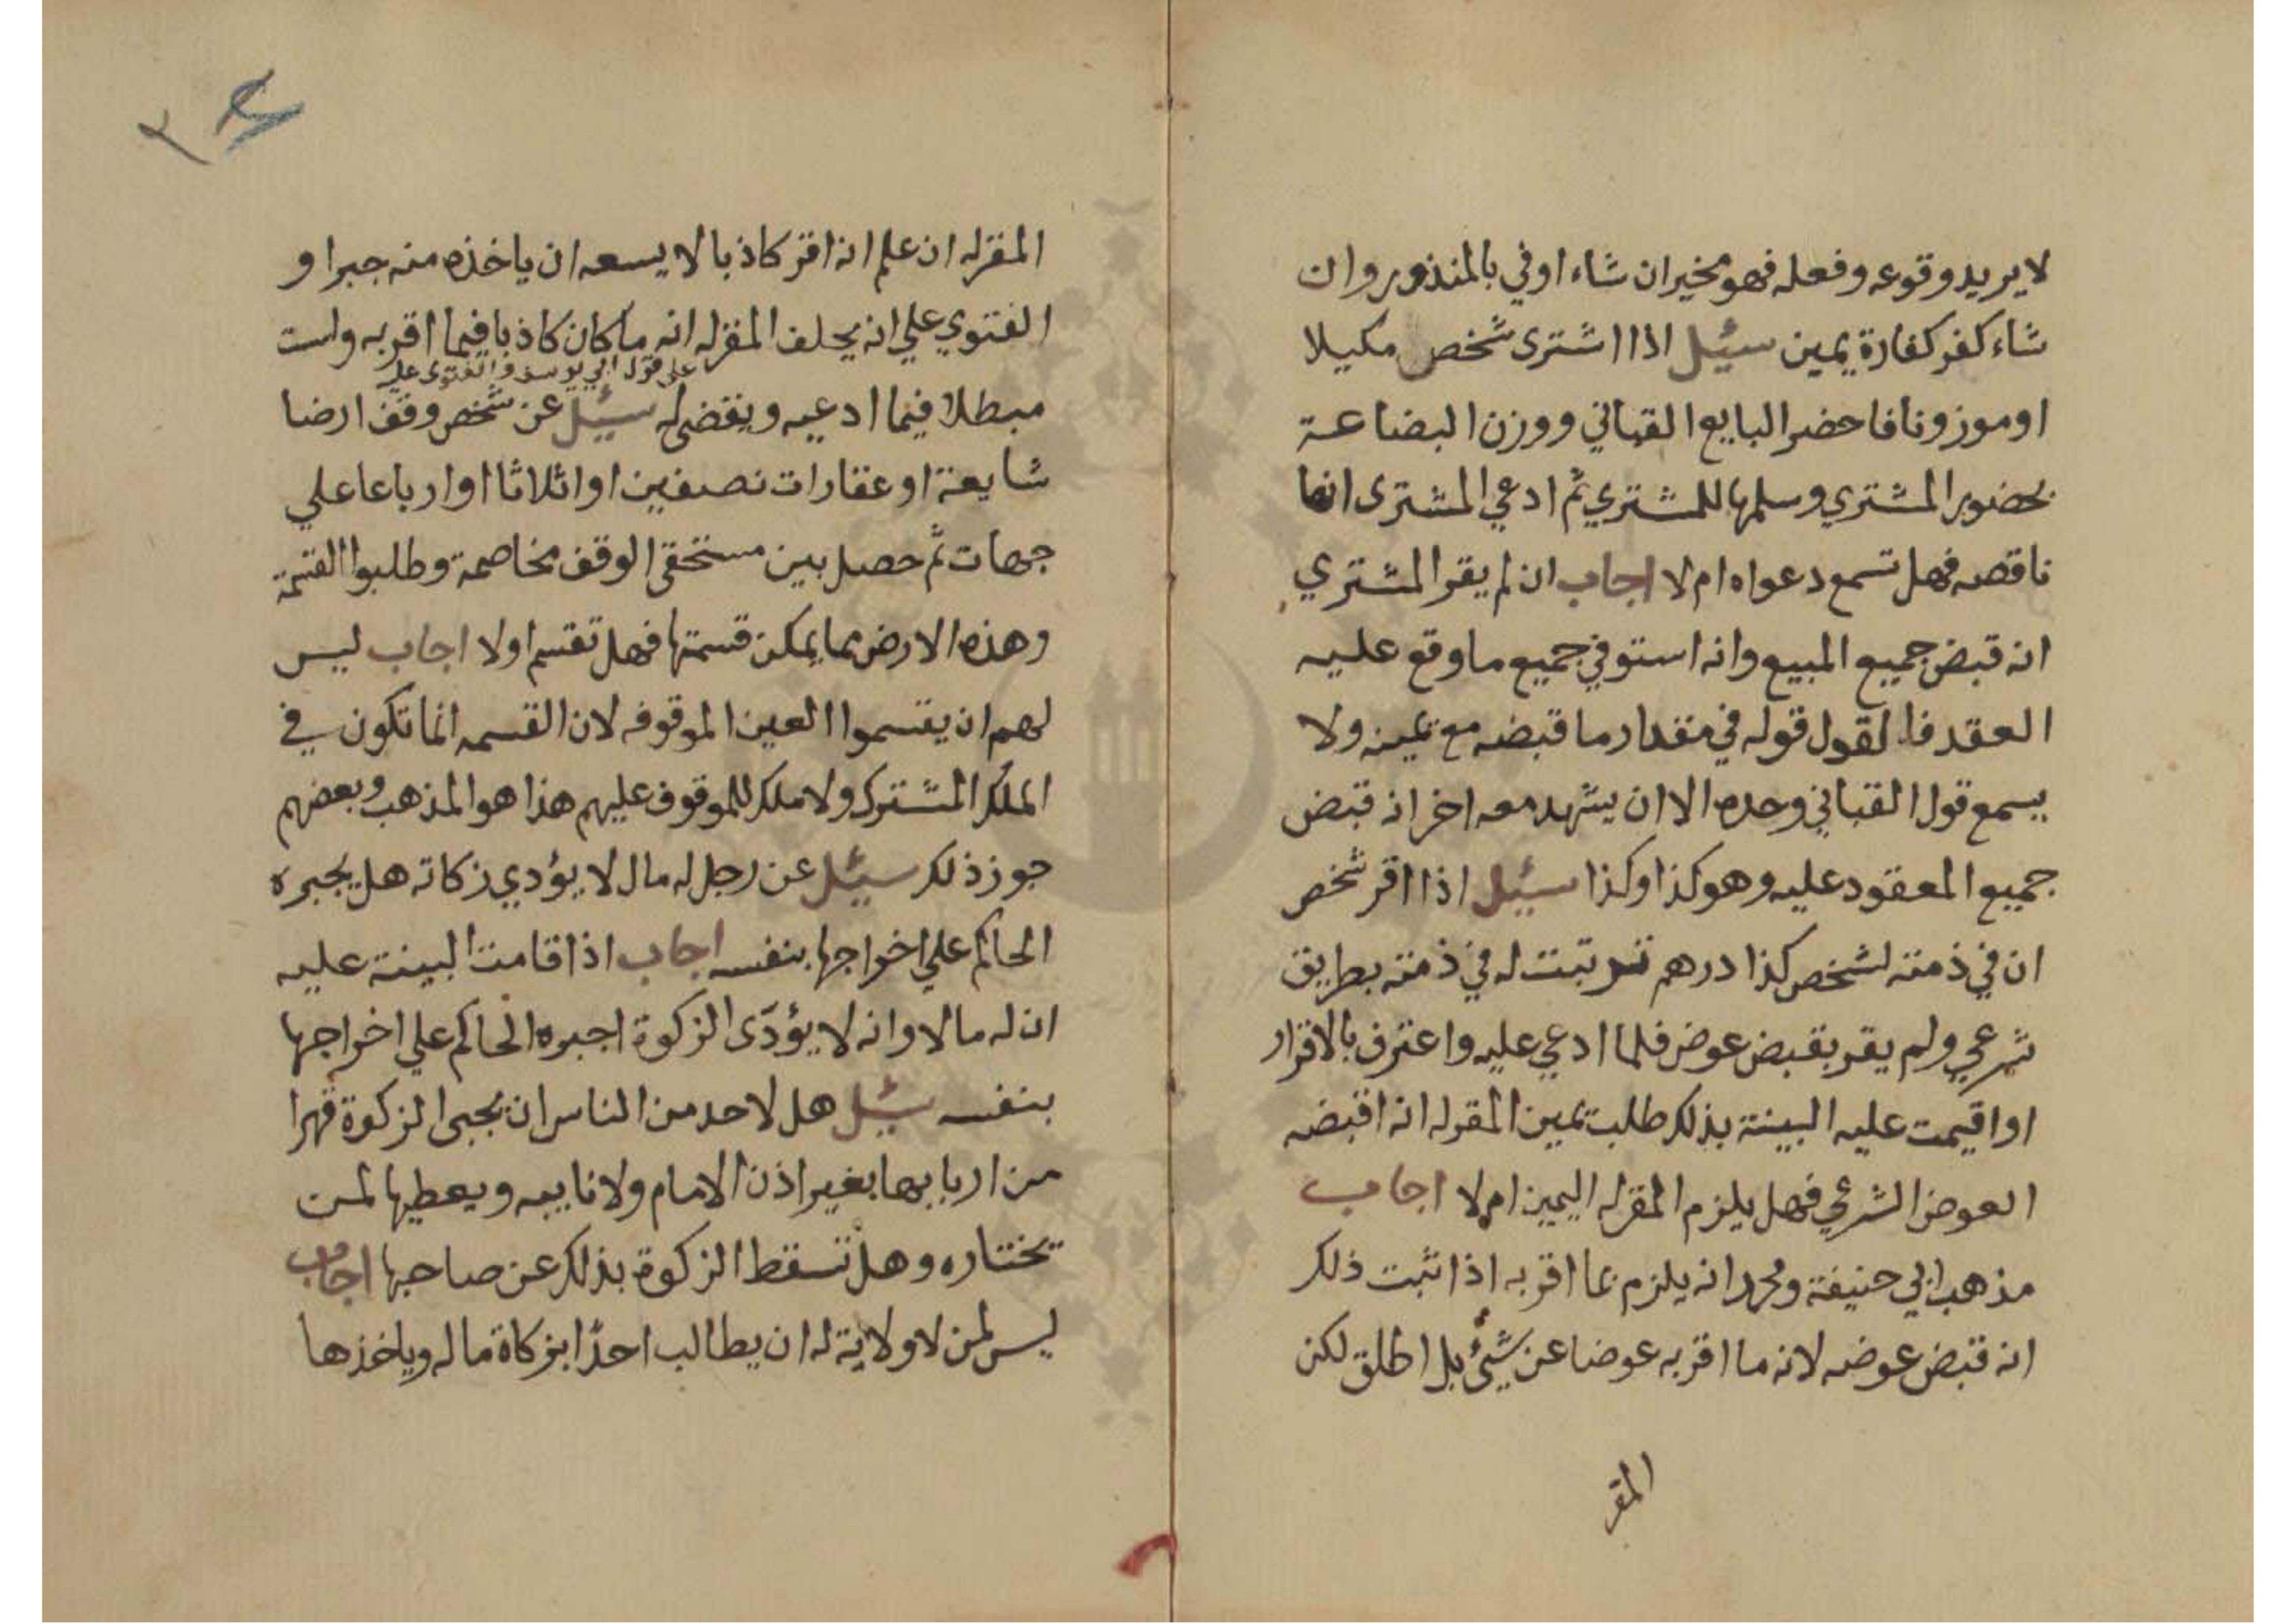 لا يريد وقوعه وفعله فهو مخير ان شاء اوفي بالمنذور وان
شاء كفر كفارة يمين سئيل اذا اشترى شخص مكيلا
او موزونا فاحضر البايع القباني ووزن البضاعة
بحضور المشتري وسلمها للمشتري ثم ادعي المشترى انها
ناقصه فهل تسمع دعواه ام لا اجاب ان لم يقر المشتري
انه قبض جميع المبيع وانه استوفي جميع ما وقع عليه
العقد فالقول قوله في مقدار ما قبضه مع يمينه ولا
يسمع قول القباني وحده الا ان يشهد معه اخر انه قبض
جميع المعقود عليه وهو كذا وكذا سئيل اذا اقر شخص
ان في ذمته لشخص كذا درهم ترتبت له في ذمته بطريق
شرعي ولم يقر بقبض عوض فلما ادعي عليه واعترف بالاقرار
او اقيمت عليه البينة بذلك طلب يمين المقر له انه اقبضه
العوض الشرعي فهل يلزم المقر له اليمين ام لا اجاب
مذهب ابي حنيفة ومحمد انه يلزم بما اقر به اذا ثبت ذلك
انه قبض عوضه لانه ما اقر به عوضا عن شيئ بل اطلق لكن
المقر
٢٤
المقر له ان علم انه اقر كاذبا لا يسعه ان ياخذه منه جبرا و
الفتوي علي انه يحلف المقر له انه ما كان كاذبا فيما اقر به ولست
على قول ابي يوسف والفتوى عليه
مبطلا فيما ادعيه ويقضى له سئيل عن شخص وقف ارضا
شايعة او عقارات نصفين او اثلاثا او ارباعا علي
جهات ثم حصل بين مستحقى الوقف مخاصمة وطلبوا القسمة
وهذه الارض مما يمكن قسمتها فهل تقسم اولا اجاب ليس
لهم ان يقتسموا العين الموقوفه لان القسمه انما تكون في
الملك المشترك ولا ملك للموقوف عليهم هذا هو المذهب وبعضهم
جوز ذلك سئيل عن رجل له مال لا يؤدي زكاته هل يجبره
الحاكم علي اخراجها بنفسه اجاب اذا قامت البينة عليه
ان له مالا وانه لا يؤدّى الزكوة اجبره الحاكم علي اخراجها
بنفسه سئيل هل لاحد من الناس ان يجبى الزكوة قهرا
من اربابها بغير اذن الامام ولا نايبه ويعطيها لمن
تختاره وهل تسقط الزكوة بذلك عن صاحبها اجاب
ليس لمن لا ولاية له ان يطالب احدًا بزكاة ماله وياخذها